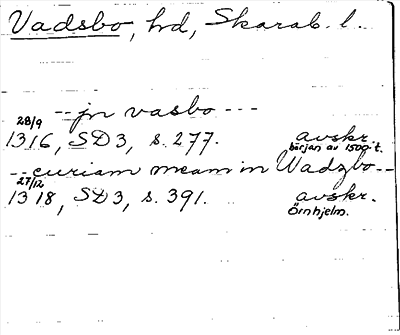 Vadsbo, hd, Skarab. l.
-- jn vasbo ---
28/9
1316, SD3, s. 277. avskr.
början av 1500-t.
-- curiam meam in Wadzbo --
27/12
1318, SD3, s. 391. avskr.
Örnhjelm.